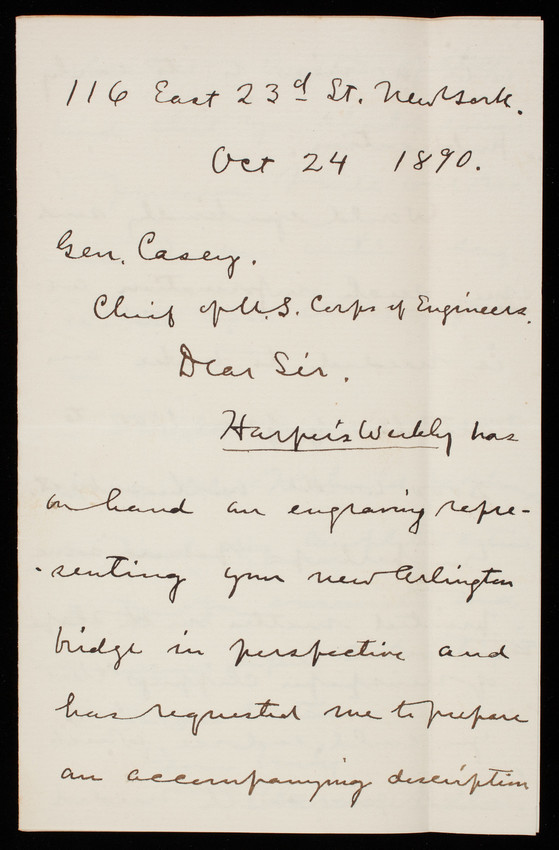 116 East 23d St. New York.
Oct 24 1890.
Gen. Casey.
Chief of U.S. Corps of Engineers.
Dear Sir.
Harper's Weekly has
on hand an engraving repre-
senting your new Arlington
bridge in perspective and
has requested me to prepare
an accompanying description